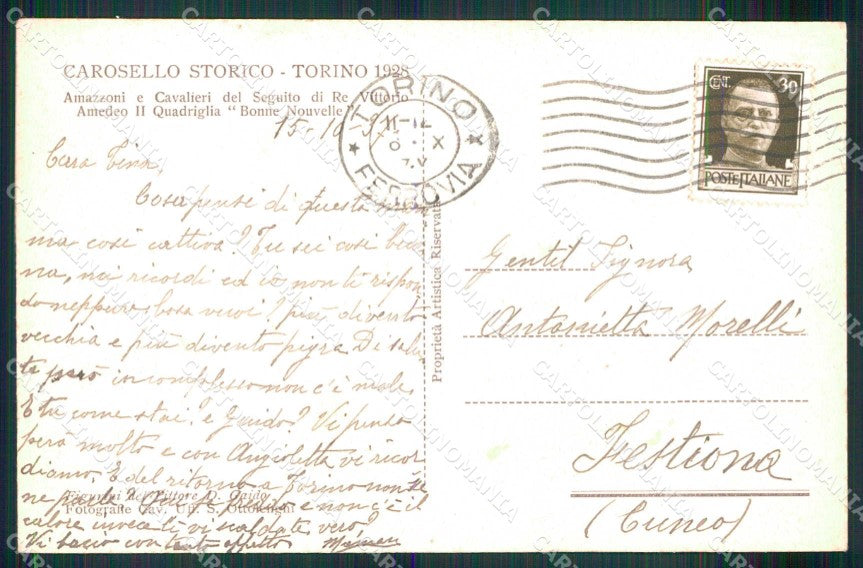 CAROSELLO STORICO - TORINO 1928
Amazzoni e Cavalieri del Seguito di Re Vittorio
Amedeo II Quadriglia "Bonne Nouvelle"
15-10-
TORINO
11-12
X
FERROVIA
CENT. 30
POSTE ITALIANE
Cara Tina,
Cosa pensi di questa
ma così cattiva? Tu sei così buo
na, mi ricordi ed io non ti rispon
do neppure. Cosa vuoi? più divento
vecchia e più divento pigra. Di salu
te però in complesso non c'è male.
E tu come stai? e Guido? Vi penso
però molto e con Angioletta vi ricor
diamo. E del ritorno a Torino non se
ne parla? e non c'è il
calore invece ti vi scaldate vero?
Vi bacio con tanto affetto
Figurini del Pittore O. Gaido
Fotografie Cav. Uff. S. Ottolenghi
Proprietà Artistica Riservata
Gentil Signora
Antonietta Morelli
Festiona
(Cuneo)
CARTOLINOMANIA